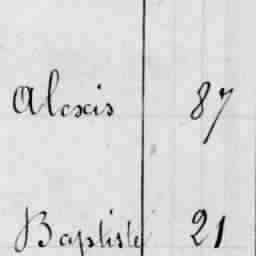 Alexis 87
Baptiste 21